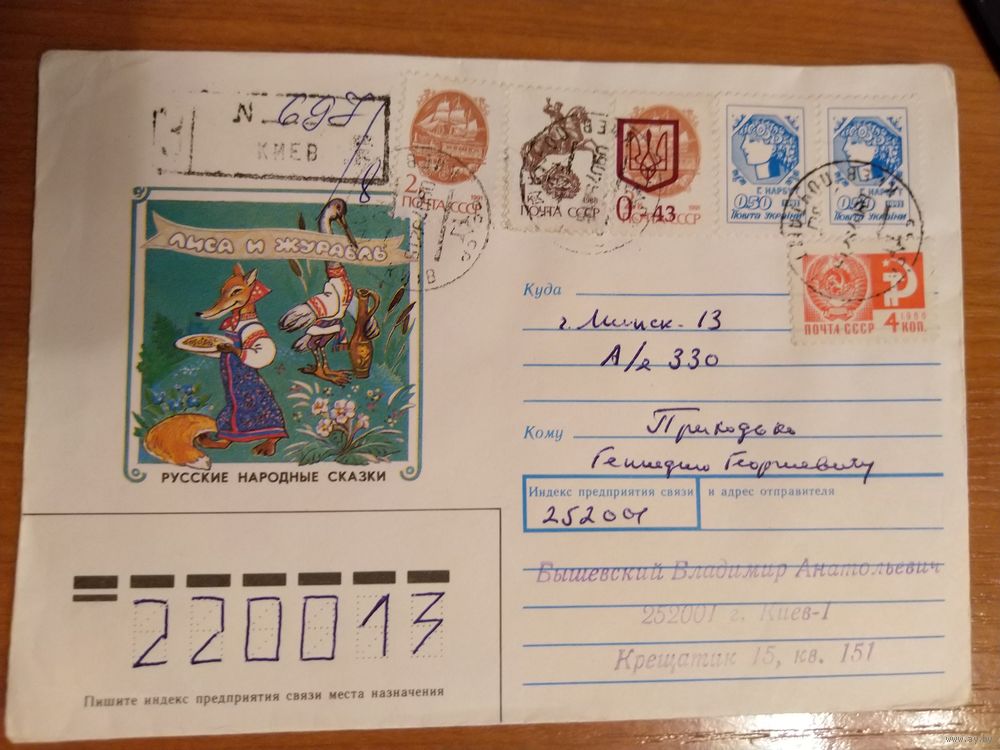 N
КИЕВ
2к
1991
ПОЧТА СССР
1988
ПОЧТА СССР
0-43
СССР
Г. НАРБУТ
0,50
Пошта України
Г. НАРБУТ
0,50
Пошта України
1966
ПОЧТА СССР 4 КОП.
ЛИСА И ЖУРАВЛЬ
РУССКИЕ НАРОДНЫЕ СКАЗКИ
Куда
г. Минск-13
А/я 330
Кому Приходько
Геннадию Георгиевичу
Индекс предприятия связи и адрес отправителя
252001
Бышевский Владимир Анатольевич
252001 г. Киев-1
Крещатик 15, кв. 151
220013
Пишите индекс предприятия связи места назначения